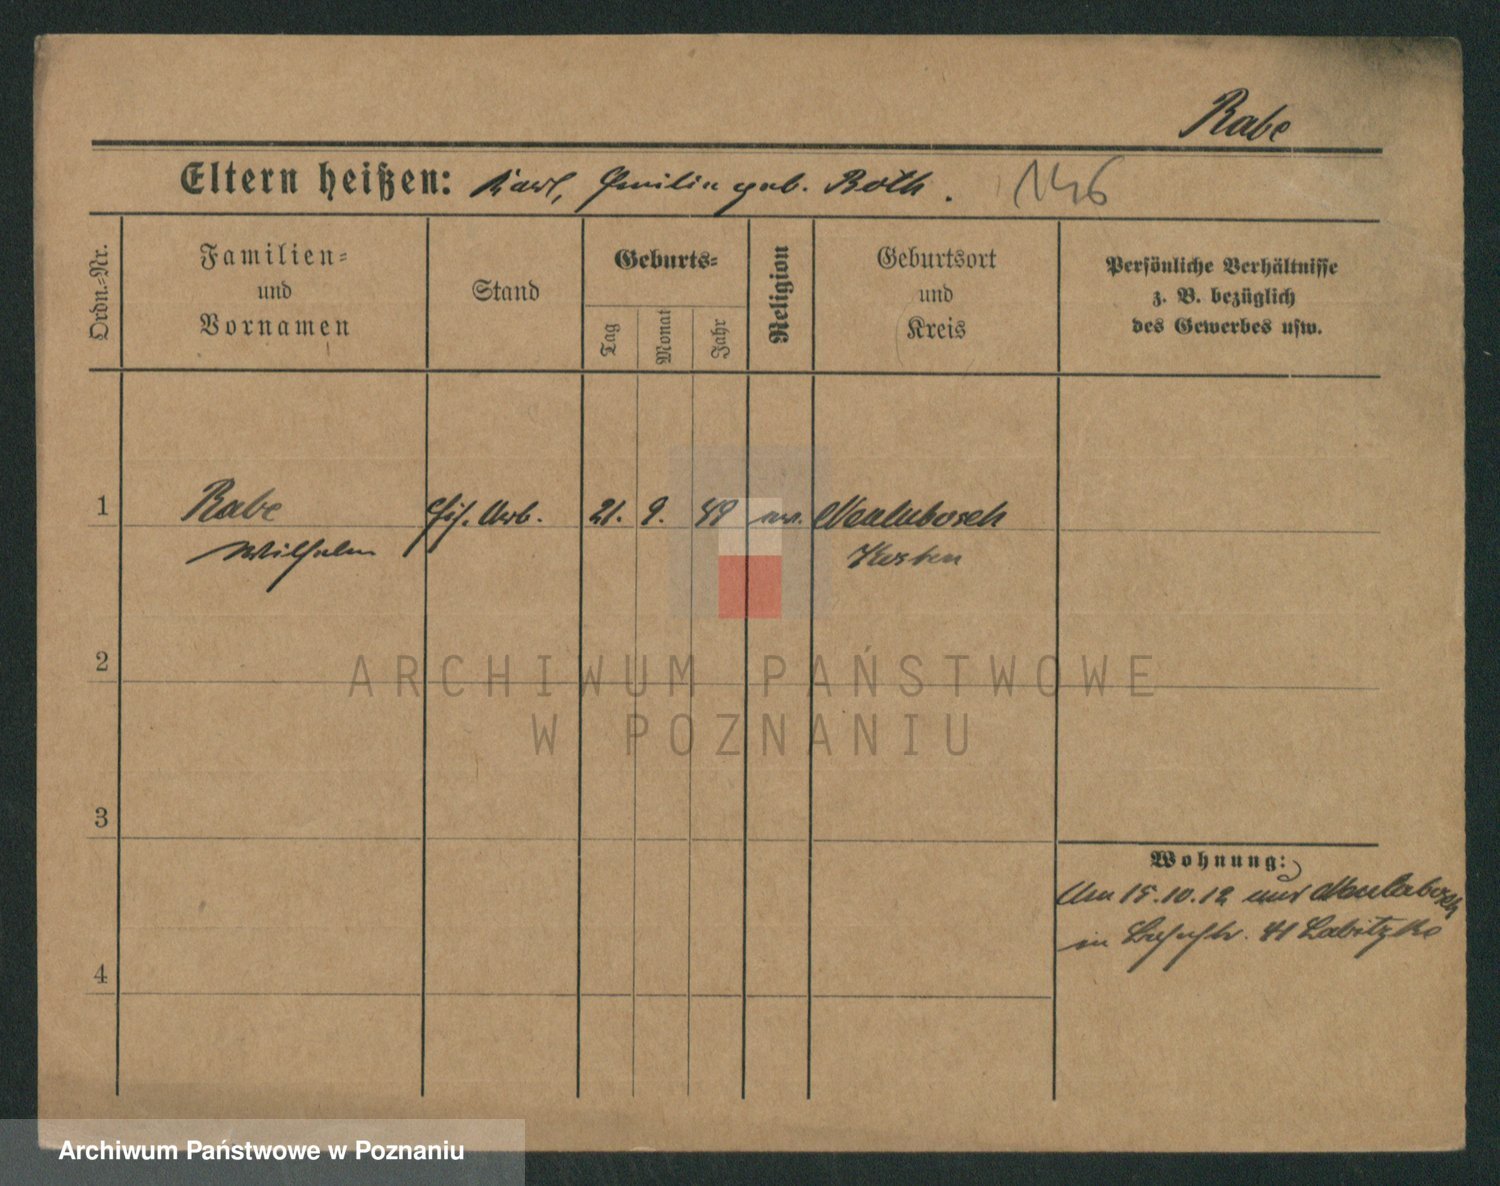 Rabe
Eltern heißen: Karl, Emilie geb. Roth. 146
Ordn.-Nr.
Familien- und Vornamen
Stand
Geburts-
Tag
Monat
Jahr
Religion
Geburtsort und Kreis
Persönliche Verhältnisse z. B. bezüglich des Gewerbes usw.
1 Rabe Arb. 21. 9. 49 ev.
Wilhelm Kosten
2
ARCHIWUM PAŃSTWOWE
W POZNANIU
3
Wohnung:
Am 15.10.12 aus
in 41 Labitzke
4
Archiwum Państwowe w Poznaniu